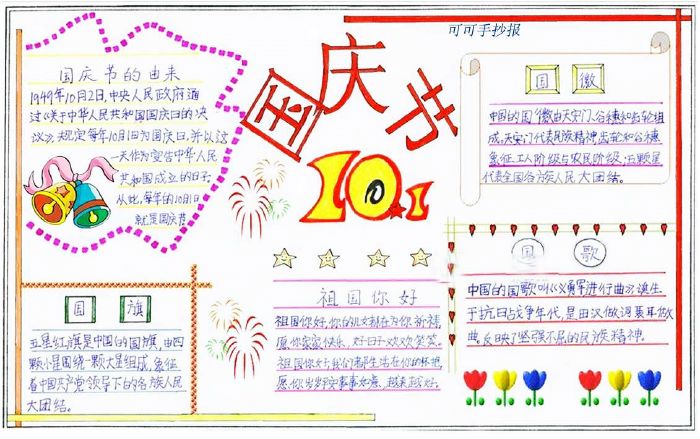 可可手抄报
国庆节
10.1
国庆节的由来
1949年10月2日,中央人民政府通
过《关于中华人民共和国国庆日的决
议》,规定每年10月1日为国庆日,并以这
一天作为宣告中华人民
共和国成立的日子。
从此,每年的10月1日
就是国庆节
国徽
中国的国徽由天安门、谷穗和齿轮组
成,天安门代表民族精神齿轮和谷穗
象征工人阶级与农民阶级,五颗星
代表全国各族人民大团结。
国旗
五星红旗是中国的国旗,由四
颗小星围绕一颗大星组成,象征
着中国共产党领导下的各族人民
大团结。
祖国你好
祖国你好,你的儿女都在为你祈祷,
愿你家家快乐,对日日欢欢笑笑。
祖国你好,我们都生活在你的怀抱,
愿你岁岁平安事事如意,越来越好。
国歌
中国的国歌叫《义勇军进行曲》诞生
于抗日战争年代,是田汉做词聂耳做
曲,反映了坚强不屈的民族精神。